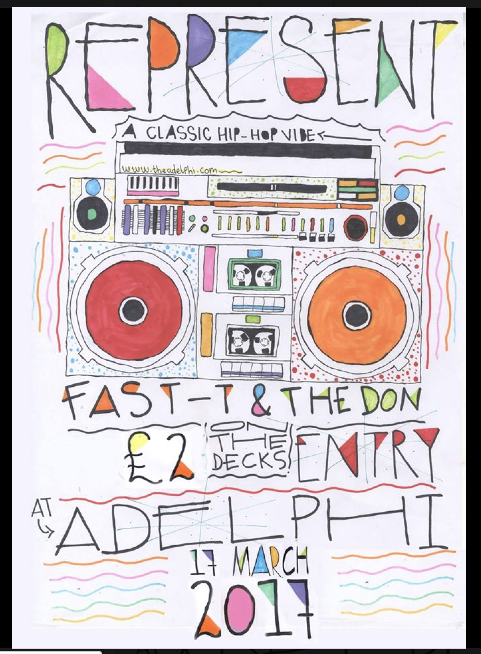 REPRESENT
A CLASSIC HIP-HOP VIBE
www.theadelphi.com
FAST-T & THE DON
£2 ON THE DECKS ENTRY
AT
ADELPHI
17 MARCH
2017